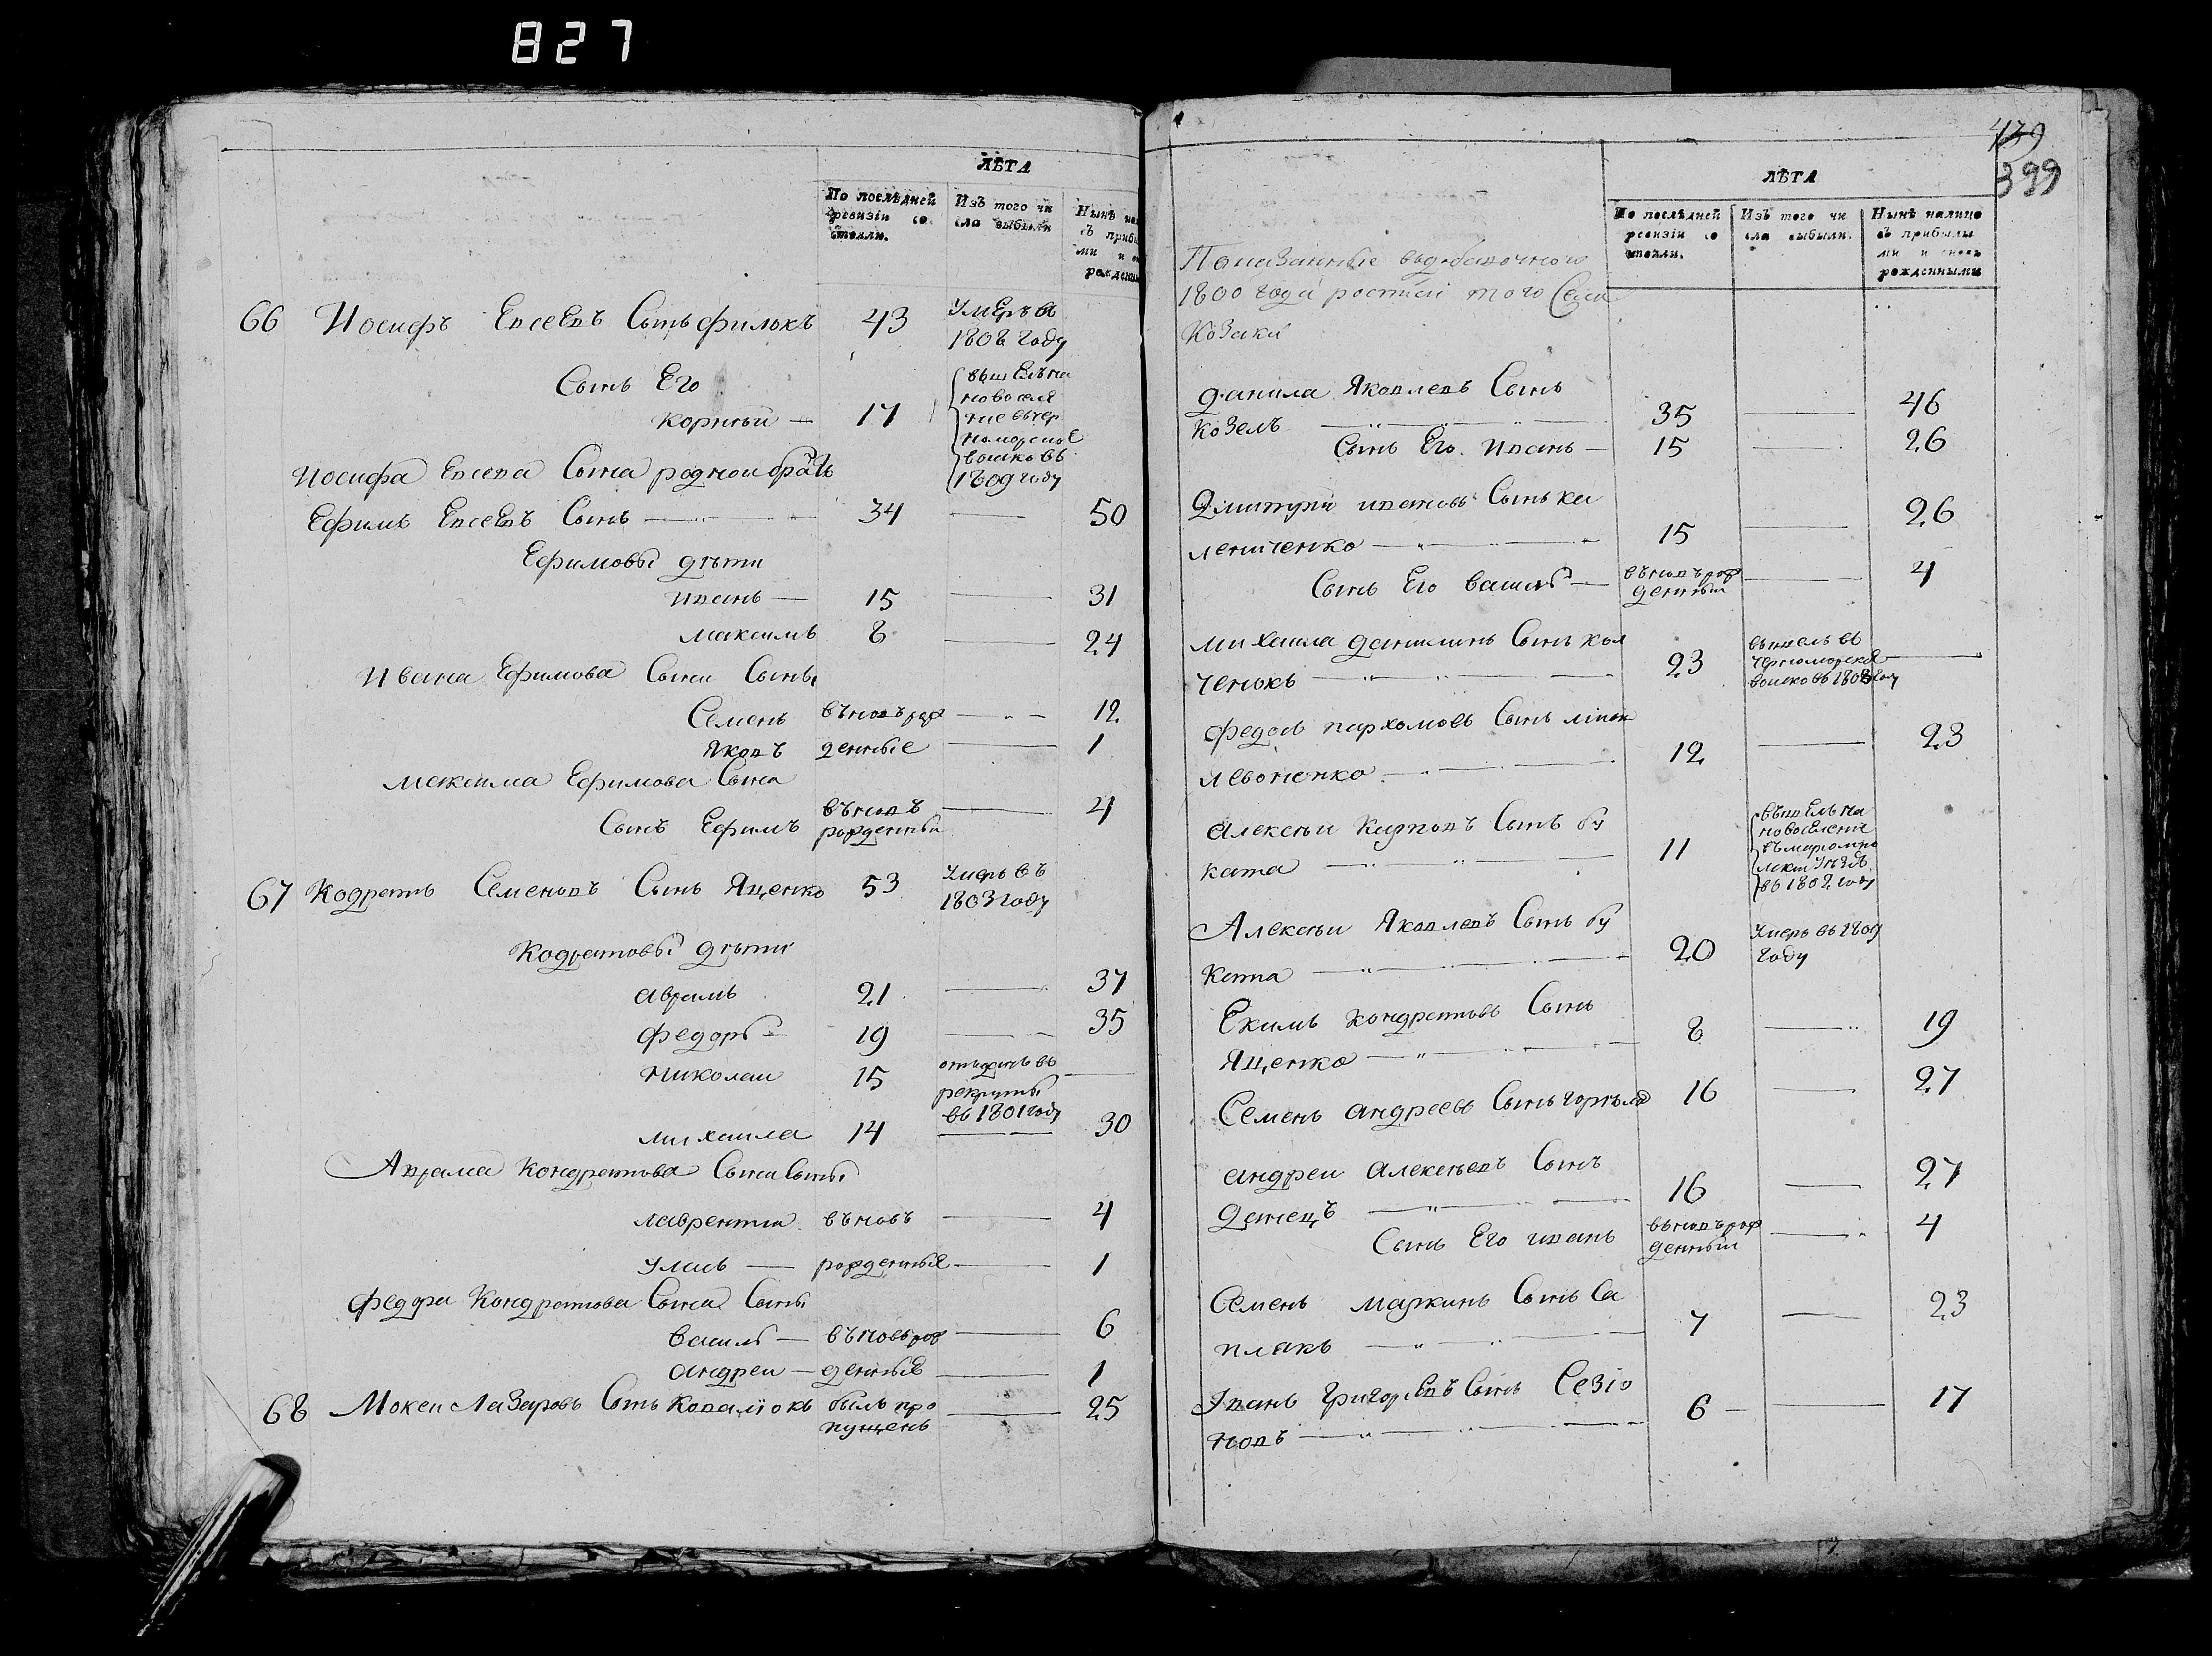 827
ЛѢТА
По послѣдней ревизіи со стояли.
Изъ того чи сла выбыли
Нынѣ на съ приб ми и рожденны
66 Иосифъ Евсеевъ Сынъ филокъ 43 Умеръ въ
1808 году
Сынъ Его
Корнѣй — 17
вышелъ на
новоселе
ние въ чер
номорское
воиско въ
1809 году
Иосифа Евсева Сына родной братъ
Ефимъ Евсеевъ Сынъ — 34 — 50
Ефимовы дѣти
иванъ — 15 — 31
максимъ 8 — 24
Ивана Ефимова Сына Сыны
Семенъ вѣновъ рож — 12
Яковъ денные — 1
максима Ефимова Сына
Сынъ Ефимъ вѣновъ — 4
рожденный
67 Кодратъ Семеновъ Сынъ Яценко 53 Умеръ въ
1803 году
Кодратовы дѣти
аврамъ 21 — 37
федоръ — 19 — 35
николаи 15 отъданъ въ —
рекруты
въ 1801 году
михаила 14 — 30
Аврама Кондратова Сына Сыны
лаврентии вѣновъ — 4
Уласъ — рожденные — 1
федора Кондратова Сына Сыны
василь — вѣновъ рож — 6
андреи — денные — 1
68 Мокеи Лазаровъ Сынъ Ковалюкъ былъ про — 25
пущенъ
439
399
ЛѢТА
По послѣдней ревизіи со стояли.
Изъ того чи сла выбыли.
Нынѣ налицо съ прибылы ми и вновь рожденными
Показанные
1800 года росписи того Села
Козаки
данила Яковлевъ Сынъ
Козелъ — 35 — 46
Сынъ Его иванъ — 15 — 26
Дмитрий ивановъ Сынъ ка
лениченко — 15 — 26
Сынъ Его василь — вѣновъ рож — 4
денныи
михаила данилинъ Сынъ кол
ченокъ — 23 вышелъ въ
черноморское —
воиско въ 1808 году
федоръ пархомовъ Сынъ
левоненко — 12 — 23
алексѣи Карповъ Сынъ бу
ката — 11
вышелъ на
новоселение
въ
уѣздъ
въ 1802 году
Алексѣи Яковлевъ Сынъ бу
ката — 20 Умеръ въ 1809
году
Екимъ Кондратовъ Сынъ
Яценко — 8 — 19
Семенъ андреевъ Сынъ 16 — 27
андреи алексѣевъ Сынъ
Донецъ — 16 — 27
Сынъ Его иванъ вѣновъ рож — 4
денныи
Семенъ маркинъ Сынъ Са
плакъ — 7 — 23
Иванъ Григорьевъ Сынъ Сезіо
новъ — 6 — 17